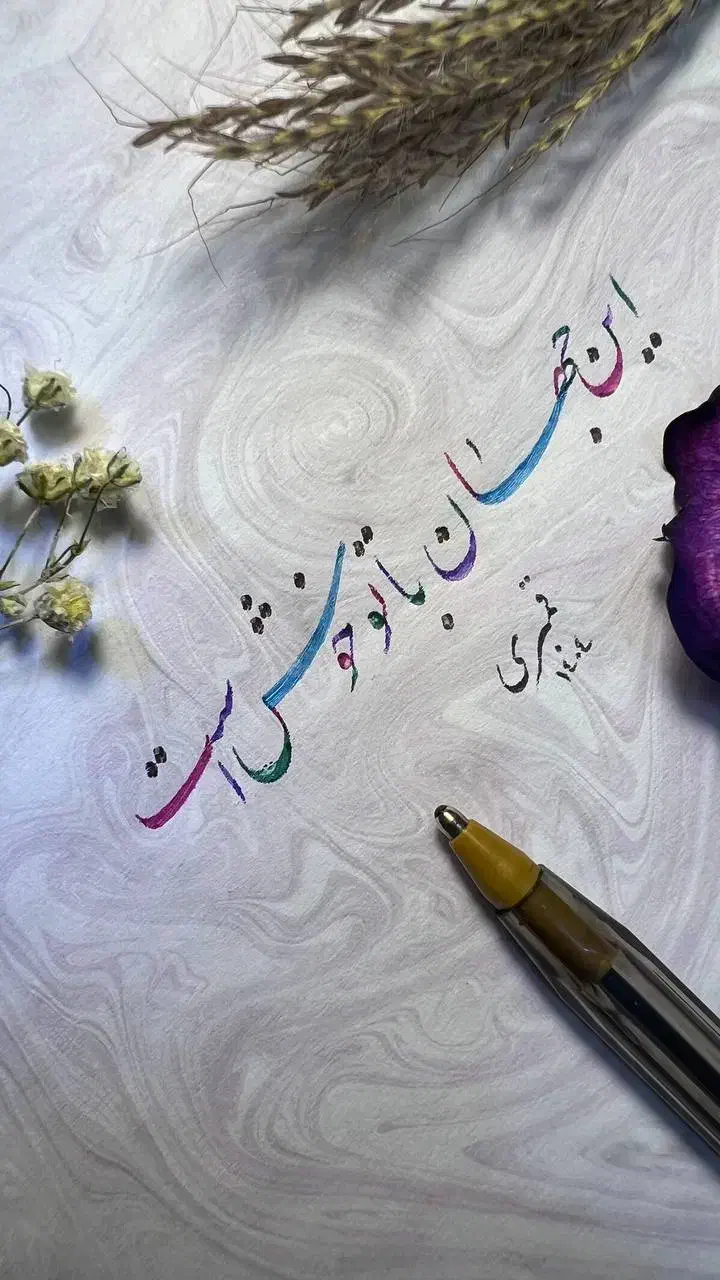 این جهان با تو خوش است
قمری
۱۴۰۴